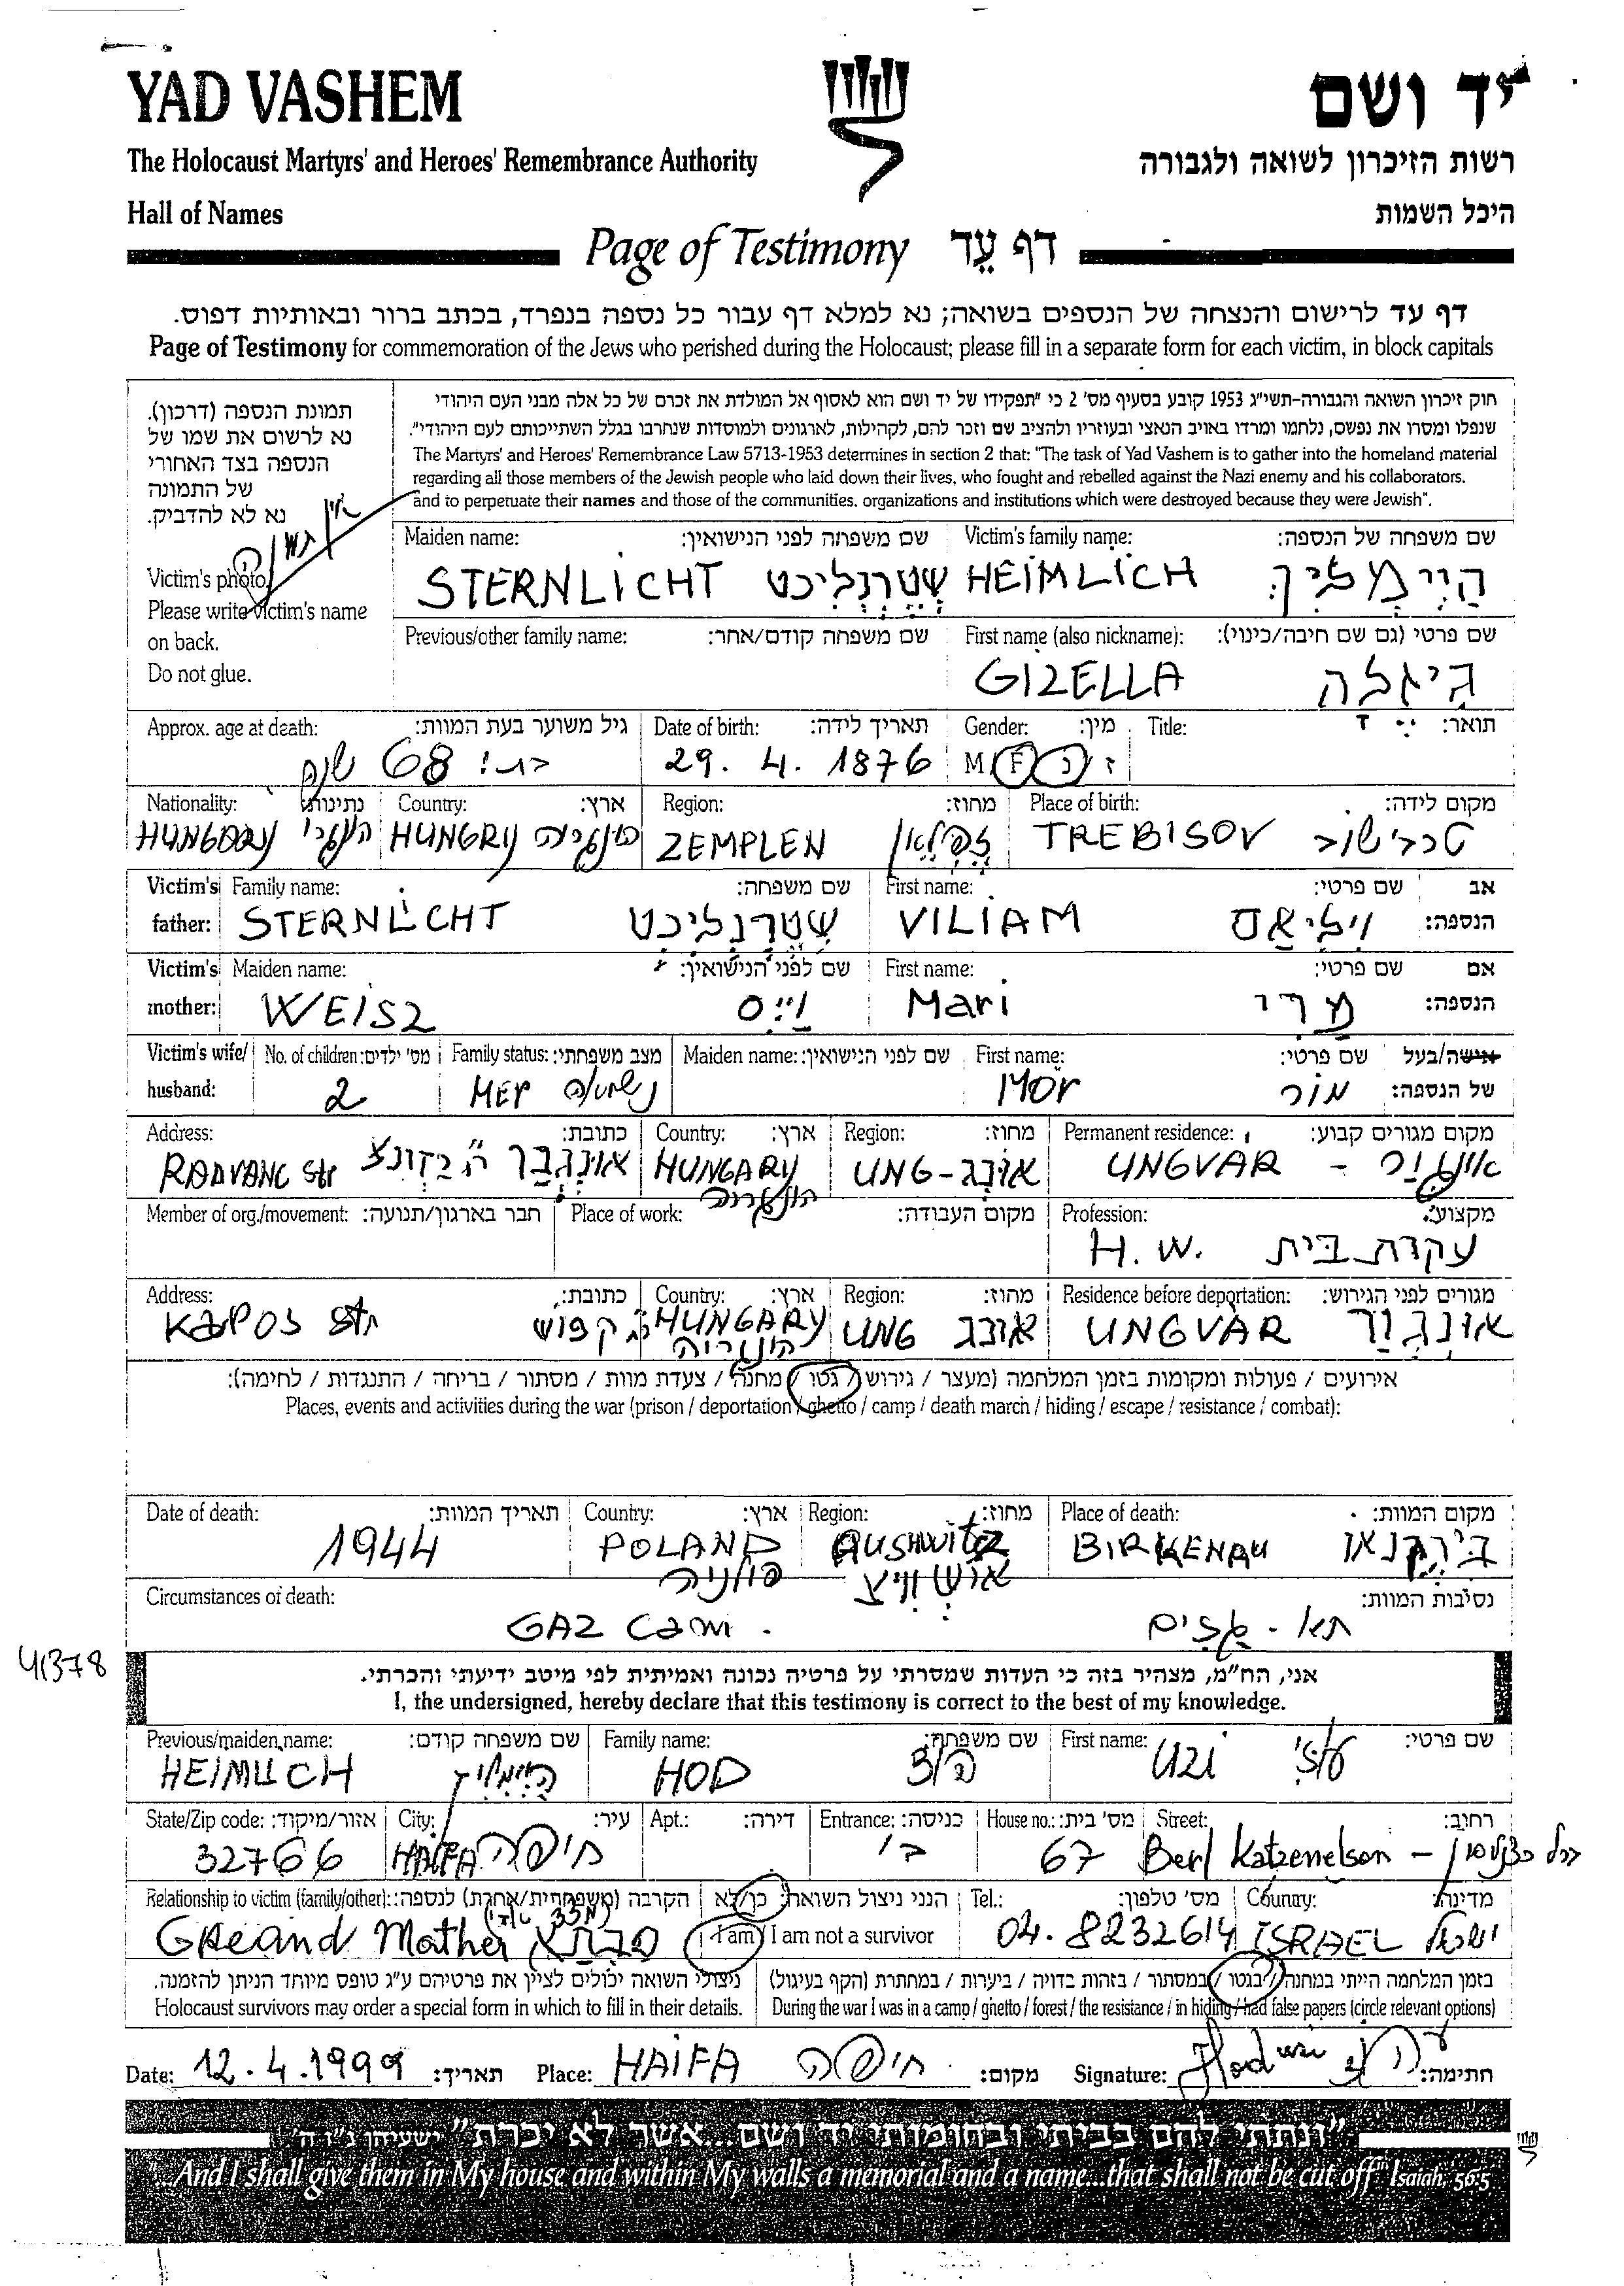 YAD VASHEM יד ושם
The Holocaust Martyrs' and Heroes' Remembrance Authority רשות הזיכרון לשואה ולגבורה
Hall of Names היכל השמות
Page of Testimony דף עֵד
דף עד לרישום והנצחה של הנספים בשואה; נא למלא דף עבור כל נספה בנפרד, בכתב ברור ובאותיות דפוס.
Page of Testimony for commemoration of the Jews who perished during the Holocaust; please fill in a separate form for each victim, in block capitals
תמונת הנספה (דרכון).
נא לרשום את שמו של
הנספה בצד האחורי
של התמונה
נא לא להדביק.
אין תמונה
Victim's photo.
Please write victim's name
on back.
Do not glue.
חוק זיכרון השואה והגבורה-תשי"ג 1953 קובע בסעיף מס' 2 כי "תפקידו של יד ושם הוא לאסוף אל המולדת את זכרם של כל אלה מבני העם היהודי
שנפלו ומסרו את נפשם, נלחמו ומרדו באויב הנאצי ובעוזריו ולהציב שם וזכר להם, לקהילות, לארגונים ולמוסדות שנחרבו בגלל השתייכותם לעם היהודי".
The Martyrs' and Heroes' Remembrance Law 5713-1953 determines in section 2 that: "The task of Yad Vashem is to gather into the homeland material
regarding all those members of the Jewish people who laid down their lives, who fought and rebelled against the Nazi enemy and his collaborators.
and to perpetuate their names and those of the communities, organizations and institutions which were destroyed because they were Jewish".
Maiden name: שם משפחה לפני הנישואין: Victim's family name: שם משפחה של הנספה:
STERNLICHT שְטֶרְנְלִיכט HEIMLICH הַיִימְלִיך
Previous/other family name: שם משפחה קודם/אחר: First name (also nickname): שם פרטי (גם שם חיבה/כינוי):
GIZELLA גִיזֶלָה
Approx. age at death: גיל משוער בעת המוות: Date of birth: תאריך לידה: Gender: מין: Title: תואר:
בת! 68 שנים 29. 4. 1876 M F נ ז
Nationality: נתינות: Country: ארץ: Region: מחוז: Place of birth: מקום לידה:
HUNGARY HUNGRY הונגריה ZEMPLEN TREBISOV טרבישוב
Victim's father: Family name: שם משפחה: First name: שם פרטי: אב הנספה:
STERNLICHT שְטֶרְנְלִיכט VILIAM וִילִיאַם
Victim's mother: Maiden name: שם לפני הנישואין: First name: שם פרטי: אם הנספה:
WEISZ וַייס Mari מָרִי
Victim's wife/husband: No. of children: מס' ילדים: Family status: מצב משפחתי: Maiden name: שם לפני הנישואין: First name: שם פרטי: אישה/בעל של הנספה:
2 MER נשואה MÓR מוֹר
Address: כתובת: Country: ארץ: Region: מחוז: Permanent residence: מקום מגורים קבוע:
RADVANC str HUNGARY הונגריה UNG-אוּנג UNGVAR - אונגוור
Member of org./movement: חבר בארגון/תנועה: Place of work: מקום העבודה: Profession: מקצוע:
H.W. עקרת בית
Address: כתובת: Country: ארץ: Region: מחוז: Residence before deportation: מגורים לפני הגירוש:
KAPOS str קפוש HUNGARY הונגריה UNG אונג UNGVÁR אוּנְגְוַור
אירועים / פעולות ומקומות בזמן המלחמה (מעצר / גירוש / גטו / מחנה / צעדת מוות / מסתור / בריחה / התנגדות / לחימה):
Places, events and activities during the war (prison / deportation / ghetto / camp / death march / hiding / escape / resistance / combat):
Date of death: תאריך המוות: Country: ארץ: Region: מחוז: Place of death: מקום המוות:
1944 POLAND פולניה AUSHWITZ אוֹשְוִויץ BIRKENAU בִּירְקֶנָאוּ
Circumstances of death: נסיבות המוות:
GAZ CAM. תא - גזים
41378
אני, הח"מ, מצהיר בזה כי העדות שמסרתי על פרטיה נכונה ואמיתית לפי מיטב ידיעתי והכרתי.
I, the undersigned, hereby declare that this testimony is correct to the best of my knowledge.
Previous/maiden name: שם משפחה קודם: Family name: שם משפחה: First name: שם פרטי:
HEIMLICH היימליך HOD הוד UZI עוזי
State/Zip code: אזור/מיקוד: City: עיר: Apt.: דירה: Entrance: כניסה: House no.: מס' בית: Street: רחוב:
32766 HAIFA חיפה ב' 67 Berl Katzenelson - ברל כצנלסון
Relationship to victim (family/other): הקרבה (משפחתית/אחרת) לנספה: הנני ניצול השואה: כן/לא Tel.: מס' טלפון: Country: מדינה:
GReand Mother סבתא I am / I am not a survivor 04. 8232614 ISRAEL ישראל
ניצולי השואה יכולים לציין את פרטיהם ע"ג טופס מיוחד הניתן להזמנה. בזמן המלחמה הייתי במחנה / בגטו / במסתור / בזהות בדויה / ביערות / במחתרת (הקף בעיגול)
Holocaust survivors may order a special form in which to fill in their details. During the war I was in a camp / ghetto / forest / the resistance / in hiding / had false papers (circle relevant options)
Date: 12.4.1999 תאריך: Place: HAIFA חיפה מקום: Signature: Hod uzi חתימה:
"ונתתי להם בביתי ובחומותי יד ושם...אשר לא יכרת" ישעיהו נ"ו ה'
And I shall give them in My house and within My walls a memorial and a name...that shall not be cut off Isaiah 56:5